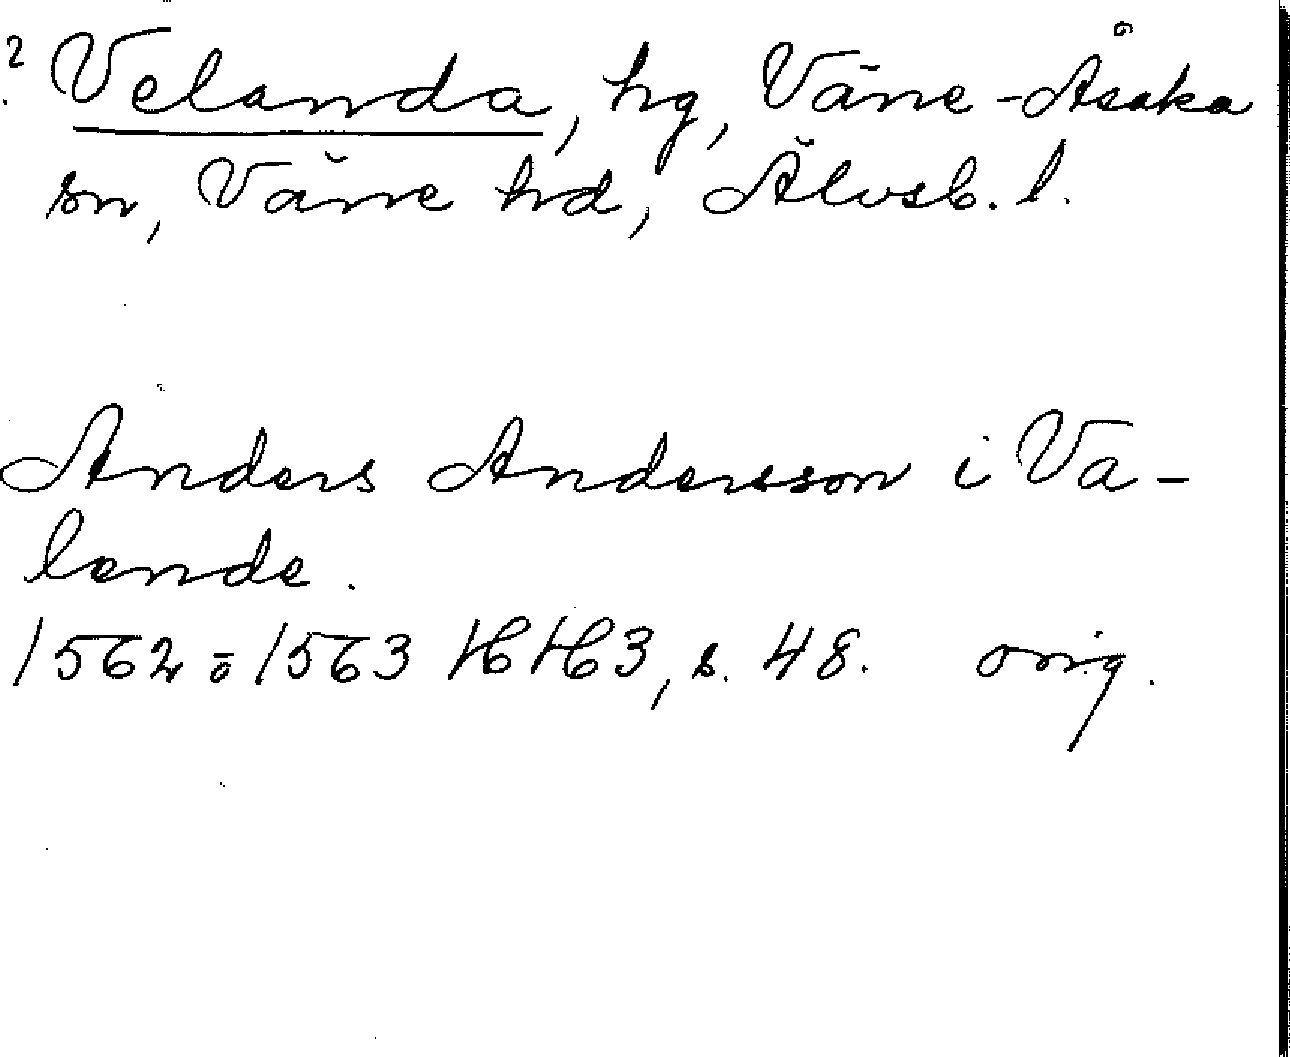 ? Velanda, hg, Väne-Åsaka
sn, Väne hd, Älvsb. l.
Anders Andersson i Va-
lende.
1562 ō 1563 HH3, s. 48. orig.